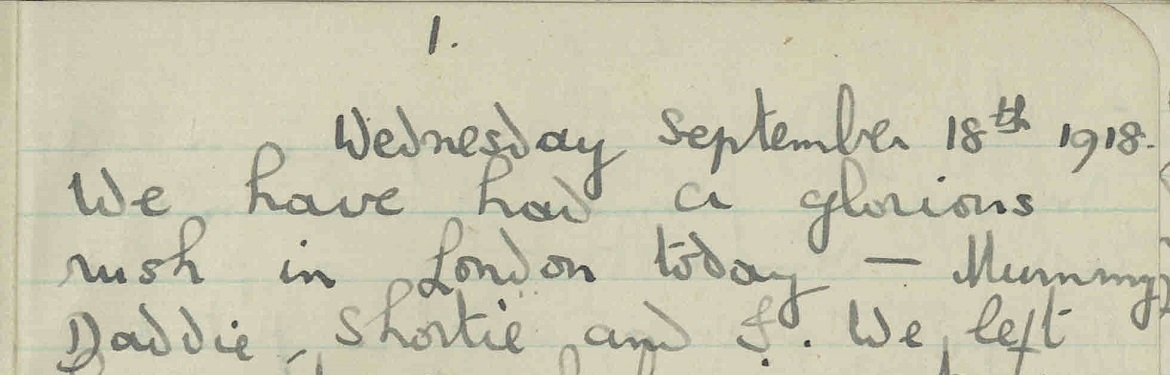 1.
Wednesday September 18th 1918.
We have had a glorious
rush in London today — Mummy,
Daddie, Shortie and I. We left